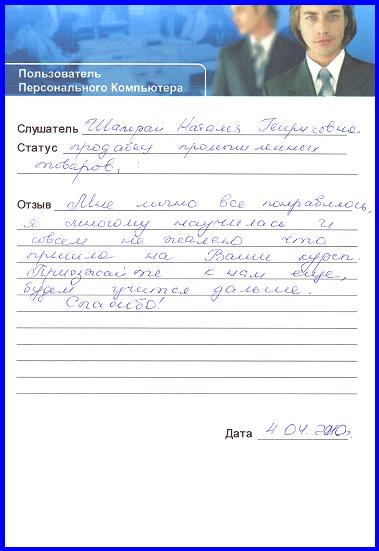 Пользователь
Персонального Компьютера
Слушатель Шапран Наталья Генриховна.
Статус продавец промышленных
товаров.
Отзыв Мне лично все понравилось,
я многому научилась и
совсем не жалею что
пришла на Ваши курсы.
Приезжайте к нам еще,
будем учится дальше.
Спасибо!
Дата 4.04.2010г.